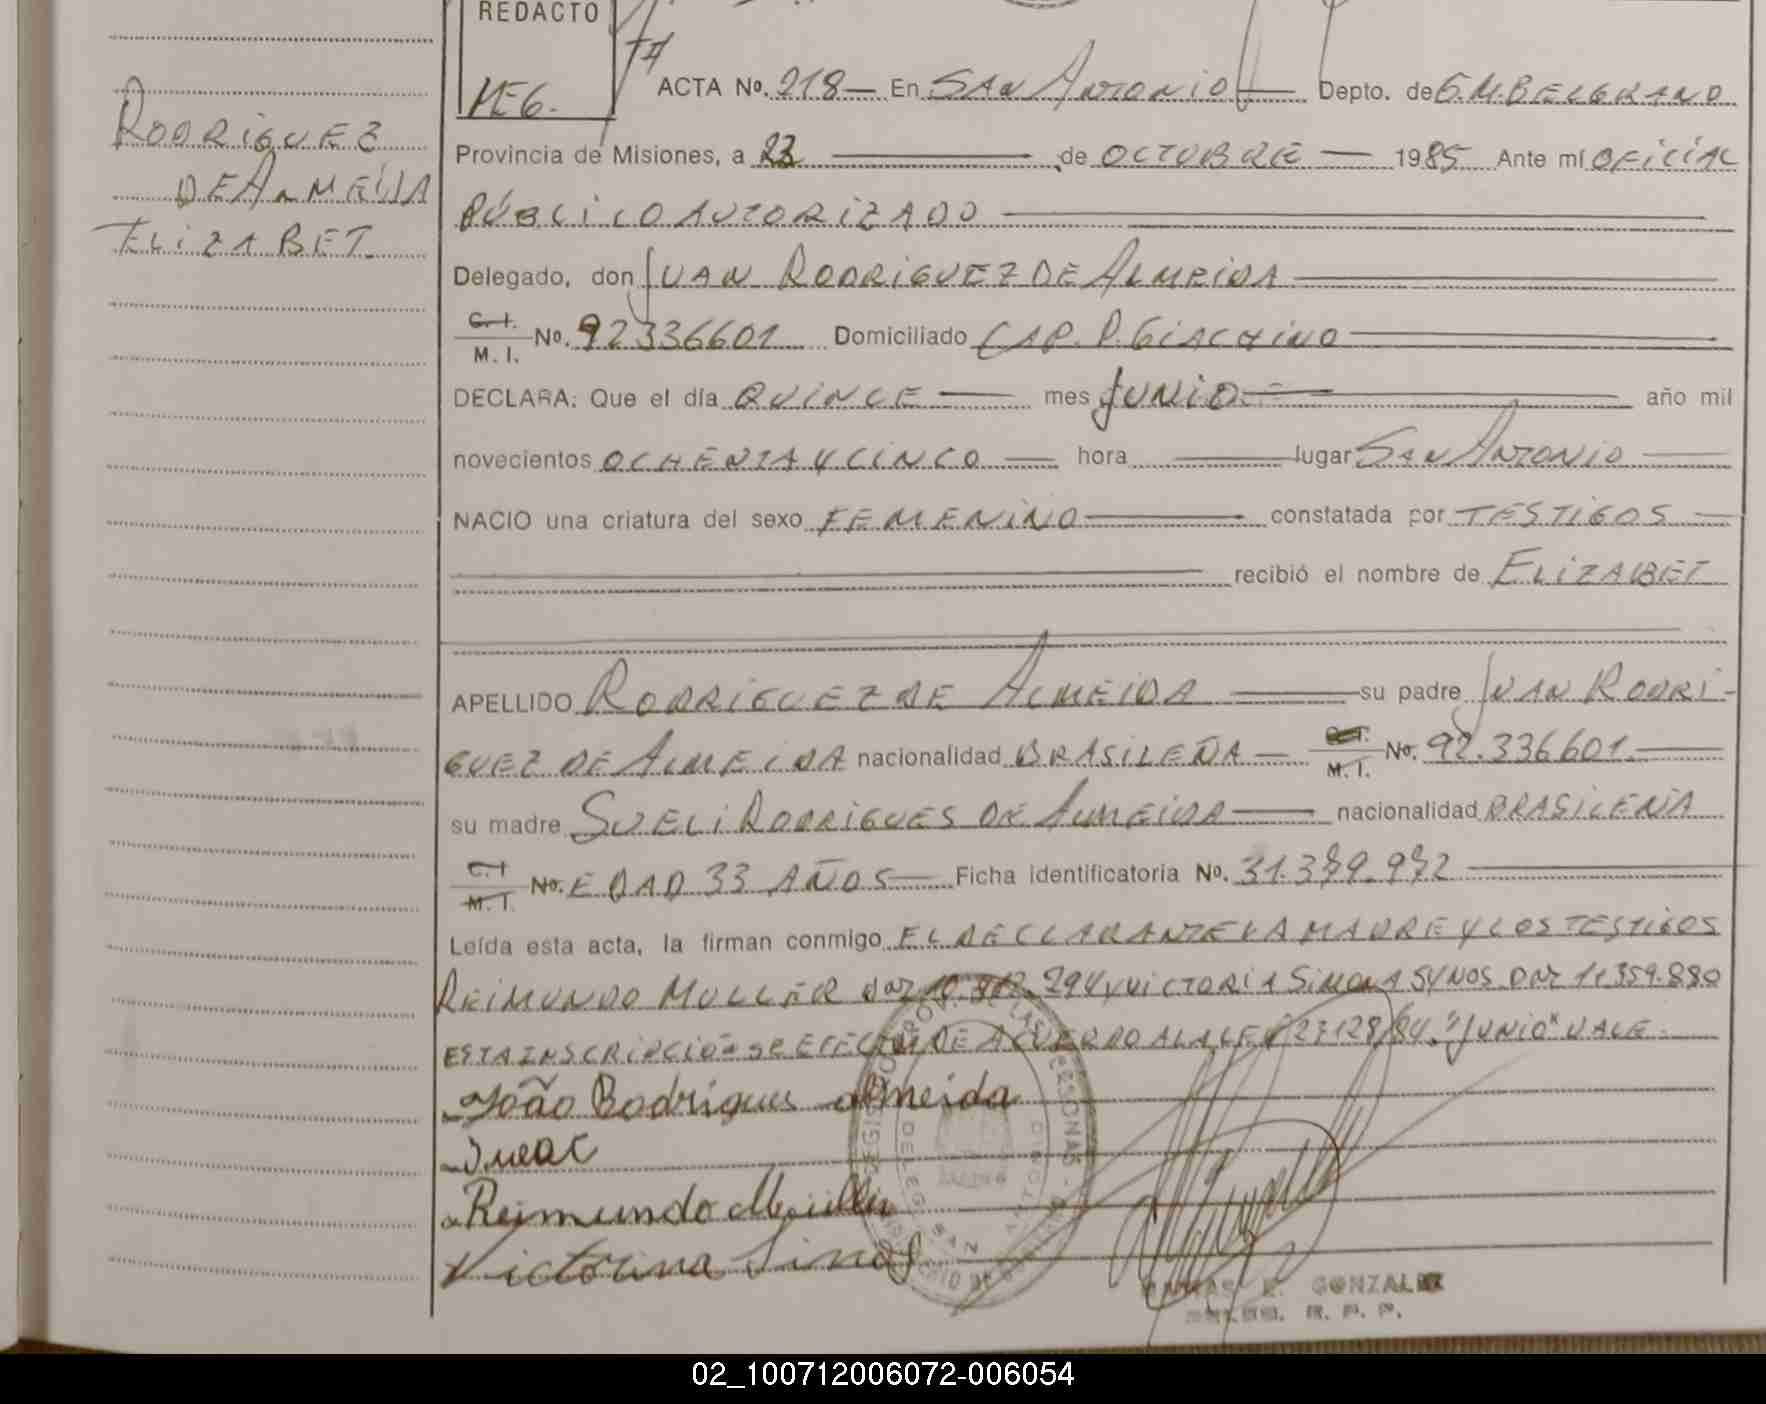 REDACTO
MEG.
RODRIGUEZ
DE ALMEIDA
ELIZABET
ACTA No. 218 En SAN ANTONIO Depto. de G.M.BELGRANO
Provincia de Misiones, a 23 de OCTUBRE 1985 Ante mí OFICIAL
PÚBLICO AUTORIZADO
Delegado, don JUAN RODRIGUEZ DE ALMEIDA
C.I. M.I. No. 92336601 Domiciliado CAP. P. GIACHINO
DECLARA: Que el día QUINCE mes JUNIO año mil
novecientos OCHENTA Y CINCO hora lugar SAN ANTONIO
NACIO una criatura del sexo FEMENINO constatada por TESTIGOS
recibió el nombre de ELIZABET
APELLIDO RODRIGUEZ DE ALMEIDA su padre JUAN RODRI-
GUEZ DE ALMEIDA nacionalidad BRASILEÑA C.I. M.I. No. 92.336601
su madre SUELI RODRIGUES DE ALMEIDA nacionalidad BRASILEÑA
C.I M.I. No. EDAD 33 AÑOS Ficha identificatoria No. 31.379.972
Leída esta acta, la firman conmigo EL DECLARANTE LA MADRE Y LOS TESTIGOS
REIMUNDO MULLER DNI 294 y VICTORIA SIMONA SYNOS DNI 11359.880
ESTA INSCRIPCIÓN SE EFECTUA DE ACUERDO A LA LEY 23128/84. "JUNIO" VALE
João Rodrigues almeida
Reimundo Muller
Victorina
SAN ANTONIO
GONZALEZ
R. P. P.
02_100712006072-006054